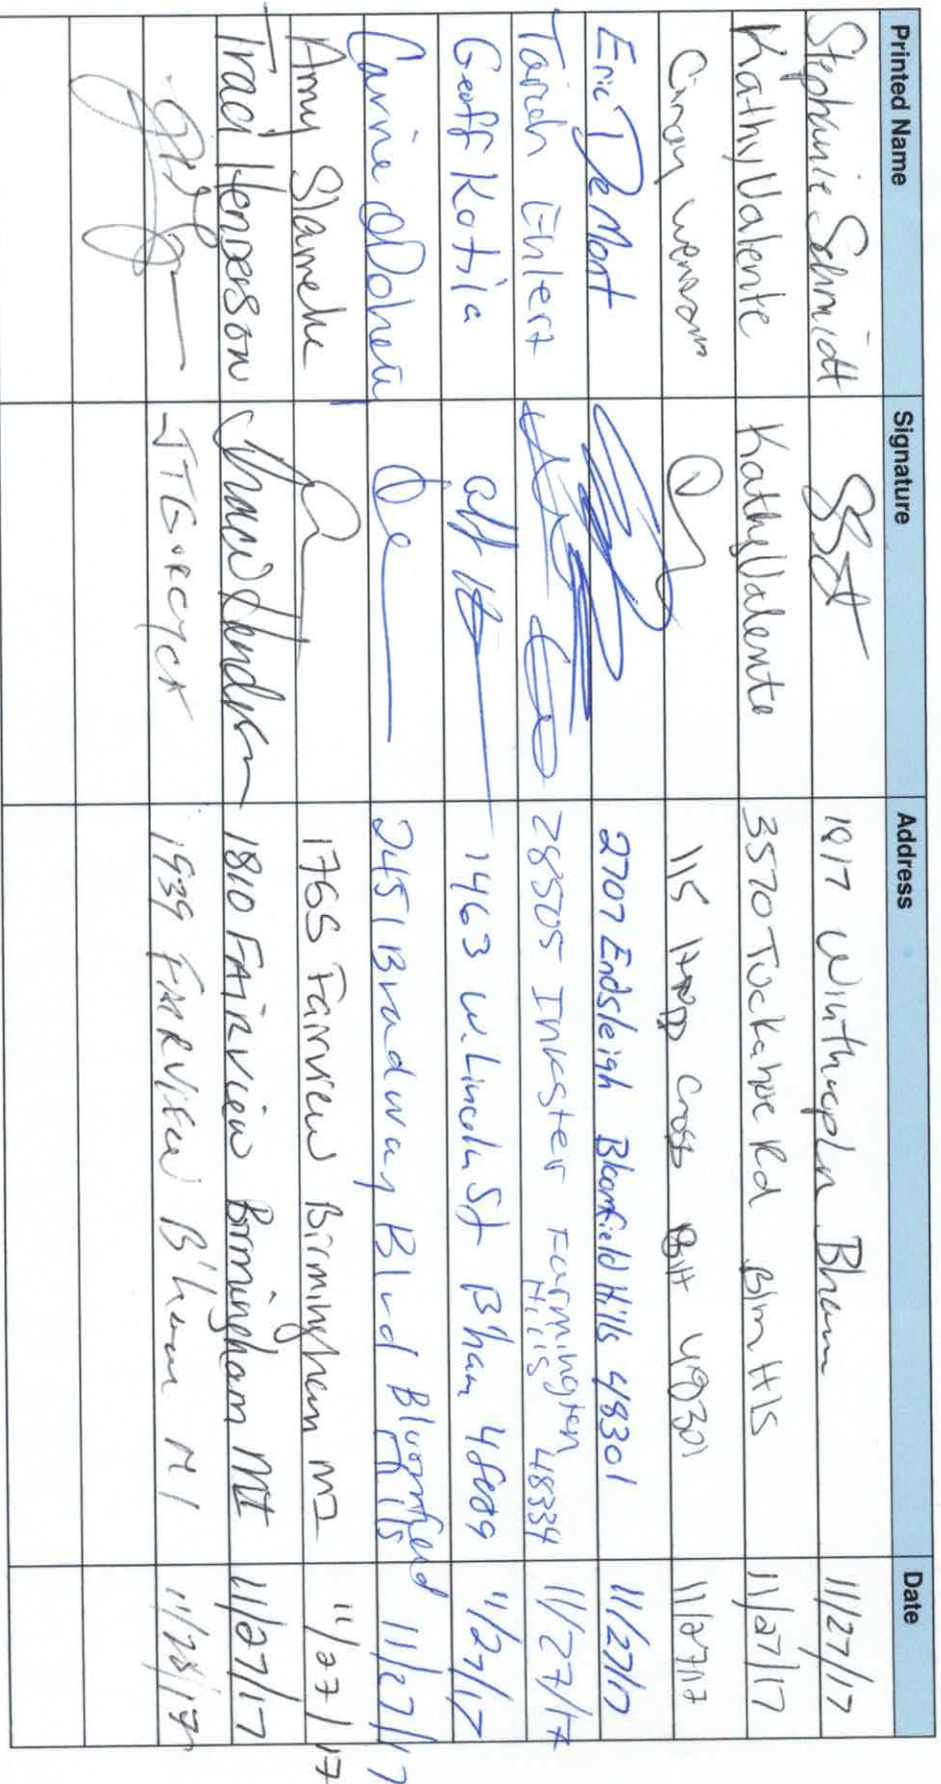 Printed Name Signature Address Date
Stephanie Schmidt 1817 Winthrop Ln Bham 11/27/17
Kathy Valente Kathy Valente 3570 Tuckahoe Rd Blm Hls 11/27/17
Cindy 115 Hupp Cross 48301 11/27/17
Eric DeMont 2707 Endsleigh Bloomfield Hills 48301 11/27/17
Tarien Ehlert 28505 Inkster Farmington Hills 48334 11/27/17
Geoff Kotila 1463 W. Lincoln St B'ham 48009 11/27/17
Carrie 2451 Bradway Blvd Bloomfield Hills 11/27/17
Amy 1765 Fairview Birmingham MI 11/27/17
Traci Henderson Traci Henderson 1810 FAIRview Birmingham MI 11/27/17
JT Gorcyca 1939 FAIRVIEW B'ham MI 11/28/17